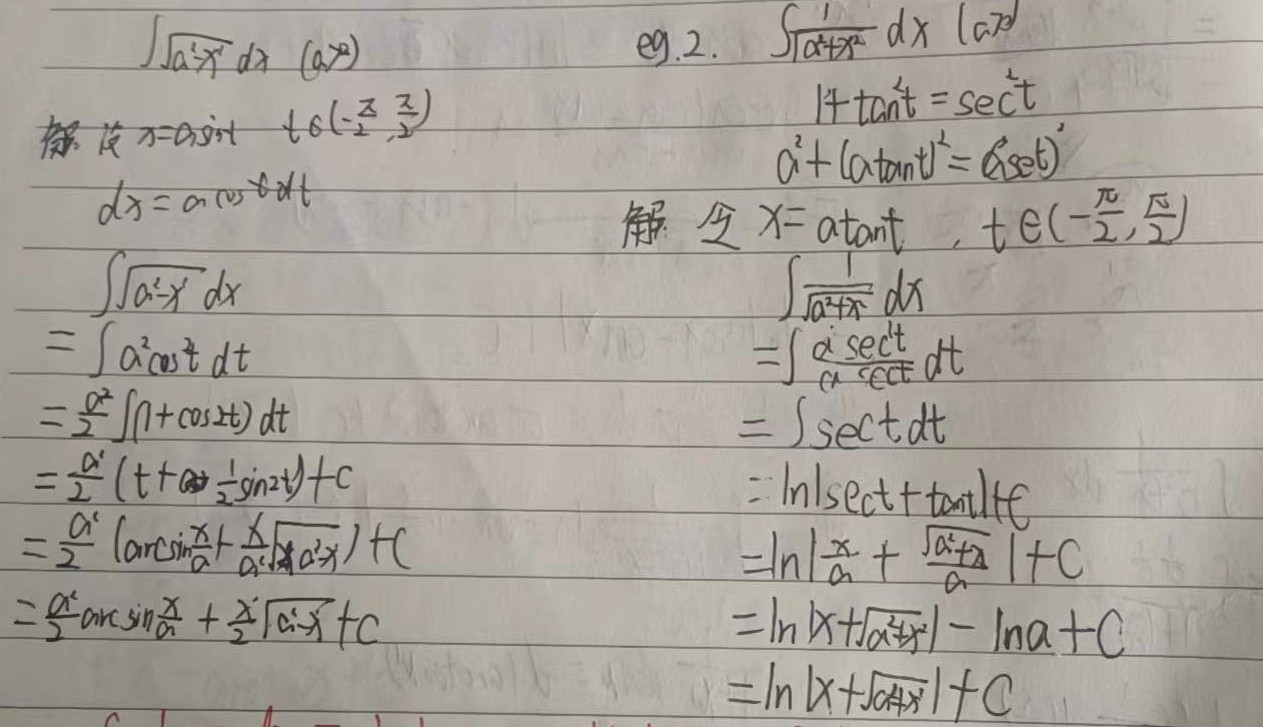 ∫√(a²-x²) dx (a>0)
解: 设 x=asint t∈(-π/2, π/2)
dx = a cost dt
∫√(a²-x²) dx
= ∫ a²cos²t dt
= a²/2 ∫(1+cos2t) dt
= a²/2 (t + 1/2 sin2t) + C
= a²/2 (arcsin x/a + x/a² √(a²-x²)) + C
= a²/2 arcsin x/a + x/2 √(a²-x²) + C
eg.2. ∫ 1/√(a²+x²) dx (a>0)
1+tan²t = sec²t
a²+(atant)² = (asect)²
解: 令 x=atant , t∈(-π/2, π/2)
∫ 1/√(a²+x²) dx
= ∫ a sec²t / a sect dt
= ∫ sect dt
= ln|sect+tant|+C
= ln|x/a + √(a²+x²)/a| + C
= ln|x+√(a²+x²)| - lna + C
= ln|x+√(a²+x²)| + C